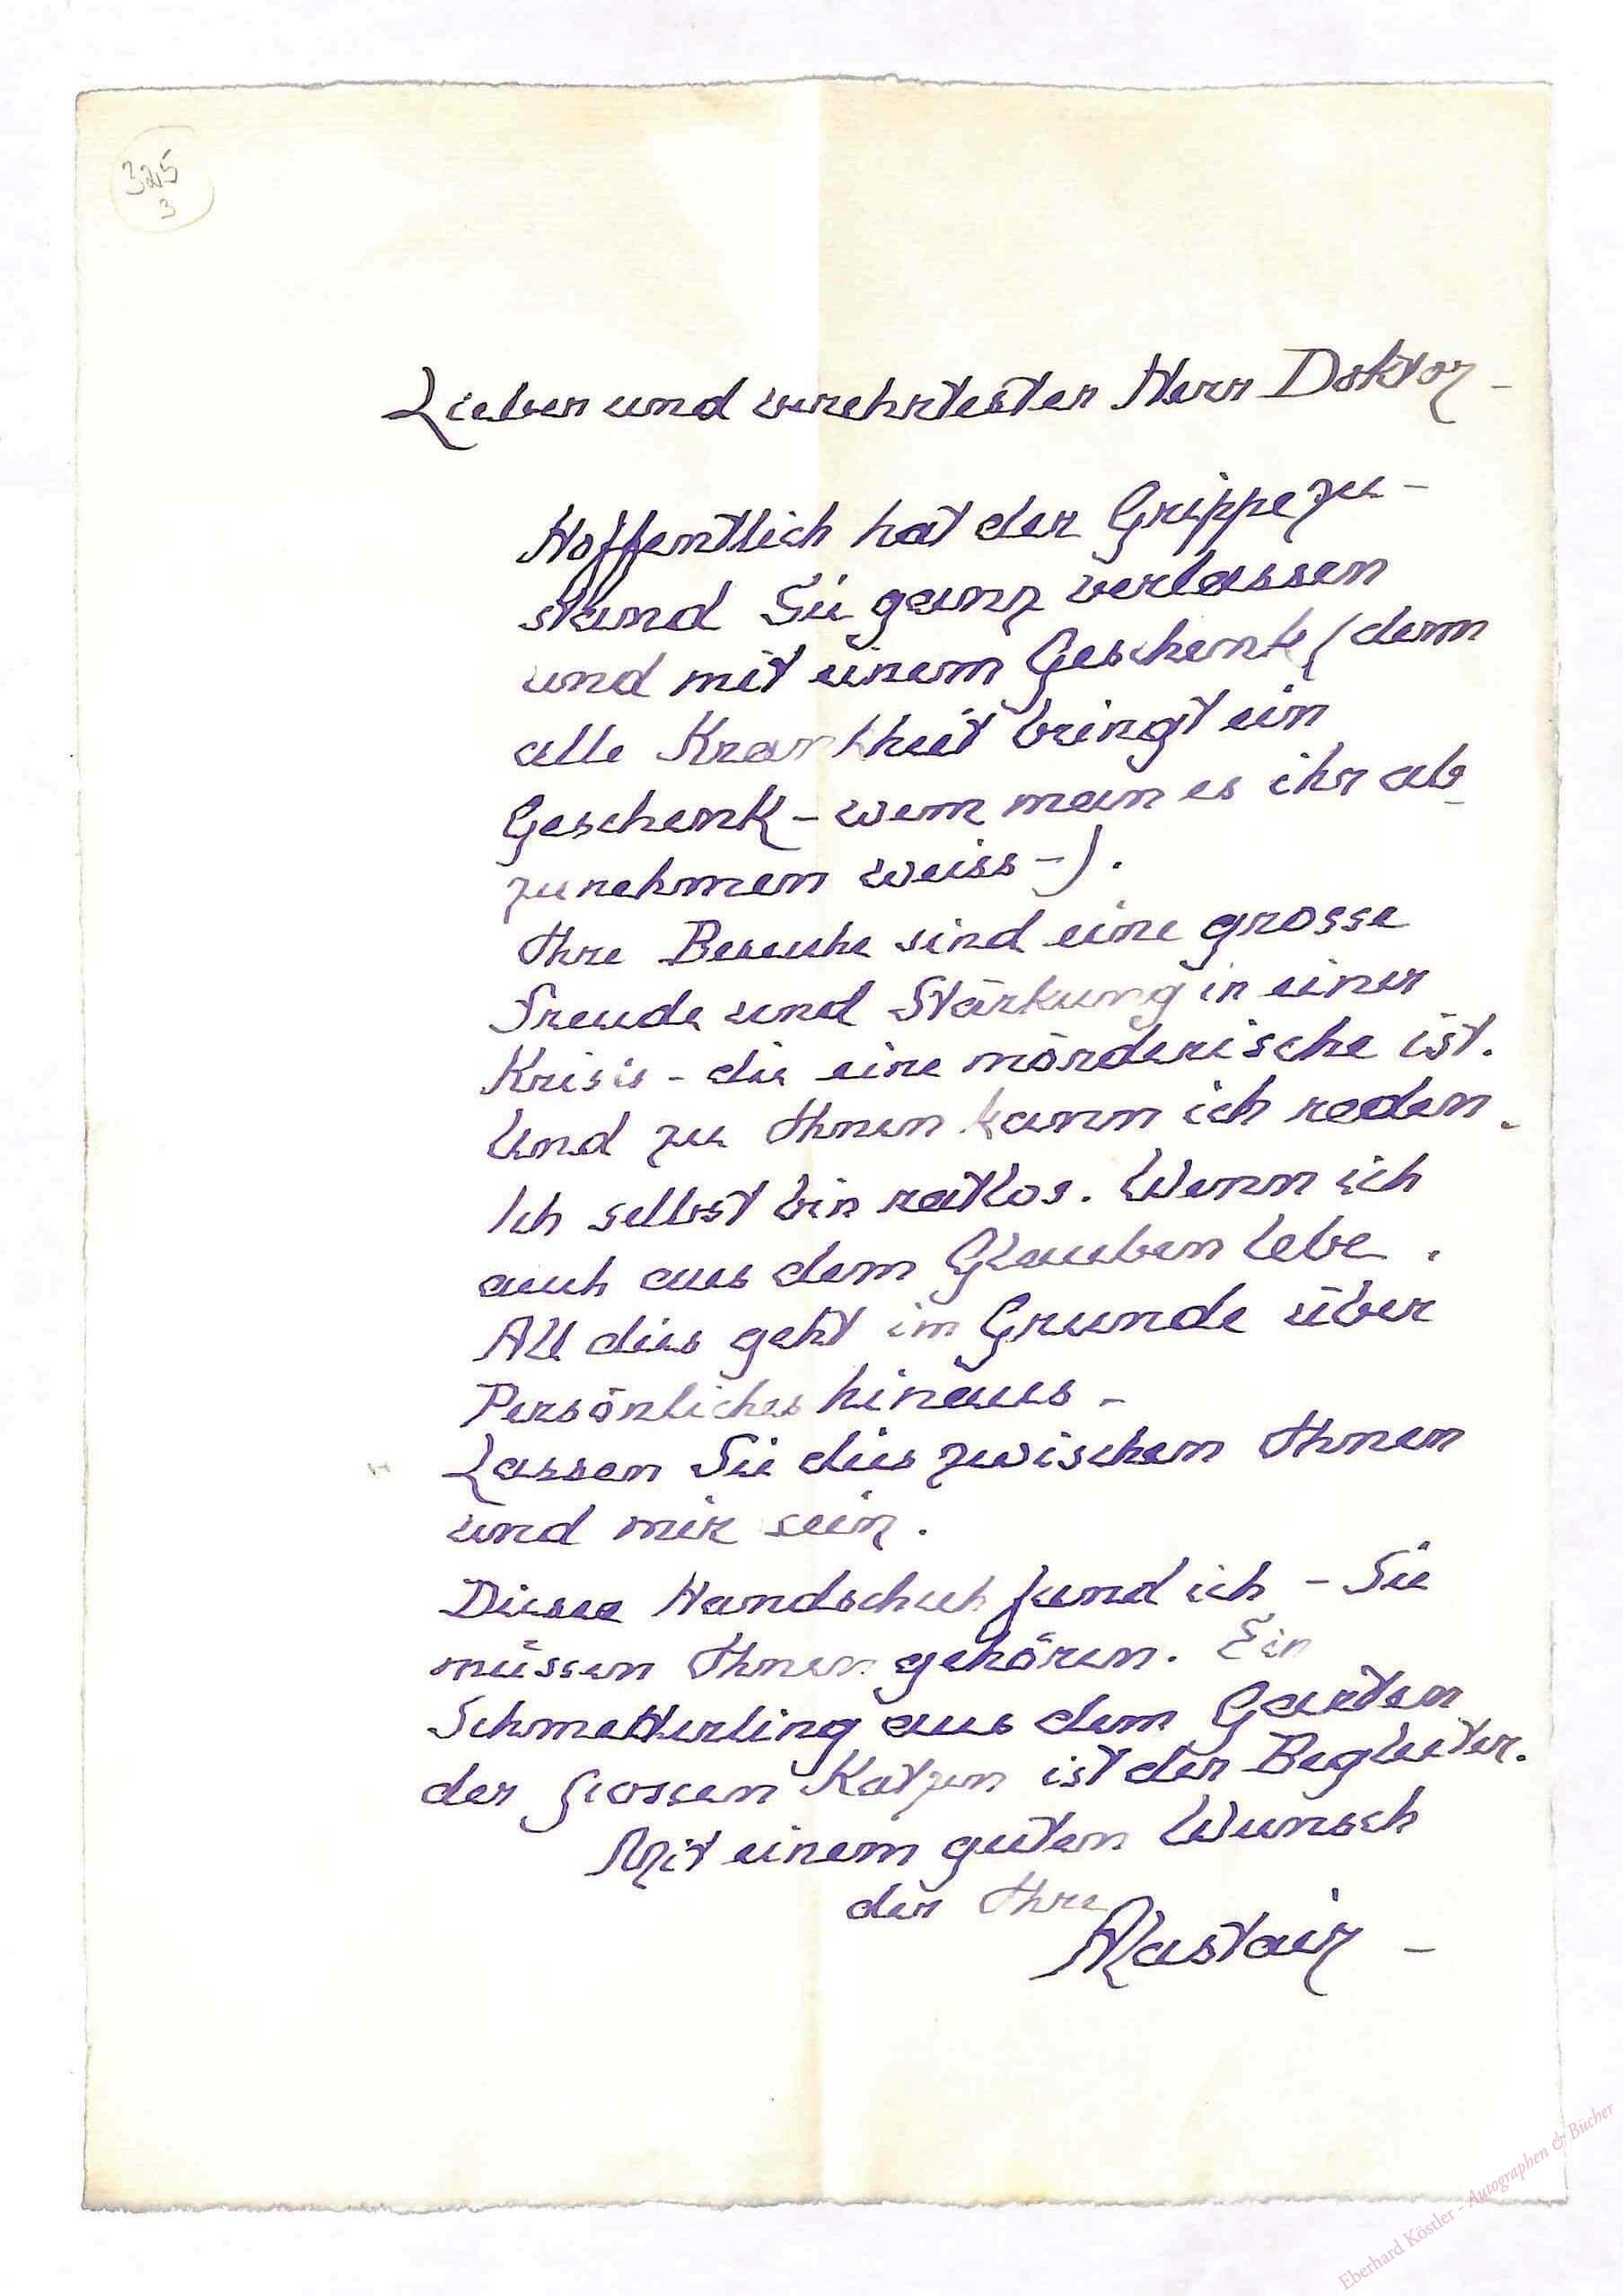 325
3
Lieber und verehrtester Herr Doktor -
Hoffentlich hat der Grippezu-
stand Sie ganz verlassen
und mit einem Geschenk (denn
alle Krankheit bringt ein
Geschenk - wenn man es ihr ab-
zunehmen weiss -).
Ihre Besuche sind eine grosse
Freude und Stärkung in einer
Krisis - die eine mörderische ist.
Und zu Ihnen kann ich reden.
Ich selbst bin ratlos. Wenn ich
auch aus dem Glauben lebe.
All dies geht im Grunde über
Persönliches hinaus -
Lassen Sie dies zwischen Ihnen
und mir sein.
Diese Handschuh fand ich - Sie
müssen Ihnen gehören. Ein
Schmetterling aus dem Garten
der grossen Katzen ist der Begleiter.
Mit einem guten Wunsch
der Ihre
Alastair -
Eberhard Köstler - Autographen & Bücher